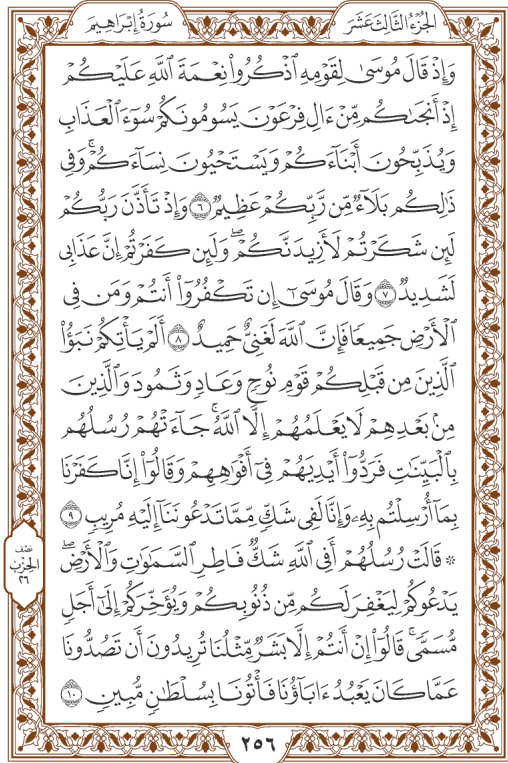 الجُزْءُ الثَّالِثَ عَشَرَ
سُورَةُ إِبْرَاهِيمَ
وَإِذْ قَالَ مُوسَىٰ لِقَوْمِهِ ٱذْكُرُوا۟ نِعْمَةَ ٱللَّهِ عَلَيْكُمْ
إِذْ أَنجَىٰكُم مِّنْ ءَالِ فِرْعَوْنَ يَسُومُونَكُمْ سُوٓءَ ٱلْعَذَابِ
وَيُذَبِّحُونَ أَبْنَآءَكُمْ وَيَسْتَحْيُونَ نِسَآءَكُمْ ۚ وَفِى
ذَٰلِكُم بَلَآءٌ مِّن رَّبِّكُمْ عَظِيمٌ ٦ وَإِذْ تَأَذَّنَ رَبُّكُمْ
لَئِن شَكَرْتُمْ لَأَزِيدَنَّكُمْ ۖ وَلَئِن كَفَرْتُمْ إِنَّ عَذَابِى
لَشَدِيدٌ ٧ وَقَالَ مُوسَىٰٓ إِن تَكْفُرُوٓا۟ أَنتُمْ وَمَن فِى
ٱلْأَرْضِ جَمِيعًا فَإِنَّ ٱللَّهَ لَغَنِىٌّ حَمِيدٌ ٨ أَلَمْ يَأْتِكُمْ نَبَؤُا۟
ٱلَّذِينَ مِن قَبْلِكُمْ قَوْمِ نُوحٍ وَعَادٍ وَثَمُودَ وَٱلَّذِينَ
مِنۢ بَعْدِهِمْ لَا يَعْلَمُهُمْ إِلَّا ٱللَّهُ ۚ جَآءَتْهُمْ رُسُلُهُم
بِٱلْبَيِّنَٰتِ فَرَدُّوٓا۟ أَيْدِيَهُمْ فِىٓ أَفْوَٰهِهِمْ وَقَالُوٓا۟ إِنَّا كَفَرْنَا
بِمَآ أُرْسِلْتُم بِهِۦ وَإِنَّا لَفِى شَكٍّ مِّمَّا تَدْعُونَنَآ إِلَيْهِ مُرِيبٍ ٩
نصف
الحزب
٢٦
۞ قَالَتْ رُسُلُهُمْ أَفِى ٱللَّهِ شَكٌّ فَاطِرِ ٱلسَّمَٰوَٰتِ وَٱلْأَرْضِ ۖ
يَدْعُوكُمْ لِيَغْفِرَ لَكُم مِّن ذُنُوبِكُمْ وَيُؤَخِّرَكُمْ إِلَىٰٓ أَجَلٍ
مُّسَمًّى ۚ قَالُوٓا۟ إِنْ أَنتُمْ إِلَّا بَشَرٌ مِّثْلُنَا تُرِيدُونَ أَن تَصُدُّونَا
عَمَّا كَانَ يَعْبُدُ ءَابَآؤُنَا فَأْتُونَا بِسُلْطَٰنٍ مُّبِينٍ ١٠
٢٥٦